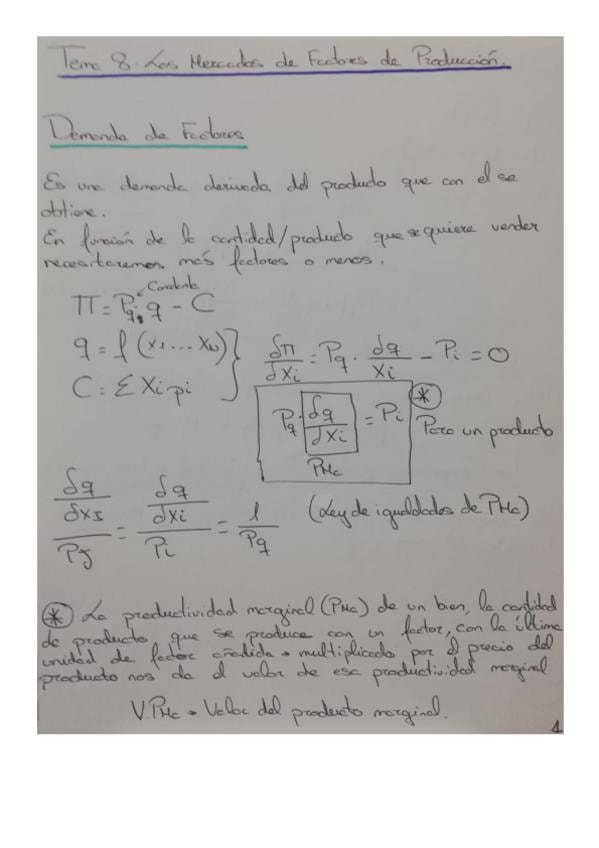 Tema 8. Los Mercados de Factores de Producción.
Demanda de Factores
Es una demanda derivada del producto que con el se
obtiene.
En función de la cantidad/producto que se quiere vender
necesitaremos más factores o menos.
Constante
Π = Pq · q - C
q = f (x1 ... xn)
C = Σ Xi pi
δΠ/δXi = Pq · δq/Xi - Pi = 0
Pq · δq/δXi = Pi *
PMa
Para un producto
(δq/δxj)/Pj = (δq/δxi)/Pi = 1/Pq (Ley de igualdades de PMa)
* La productividad marginal (PMa) de un bien, la cantidad
de producto, que se produce con un factor, con la última
unidad de factor añadida → multiplicado por el precio del
producto nos da el valor de esa productividad marginal
V.PMa → Valor del producto marginal.
1